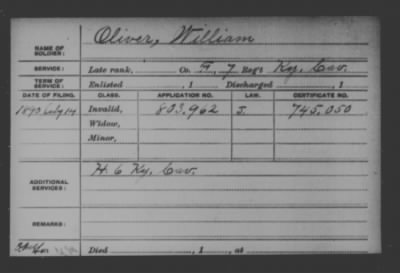 Oliver, William
NAME OF SOLDIER:
SERVICE: Late rank, Co. 7 Reg't Ky. Cav.
TERM OF SERVICE: Enlisted , 1 Discharged , 1
DATE OF FILING. CLASS. APPLICATION NO. LAW. CERTIFICATE NO.
1890 July 14 Invalid, 803.962 J. 745.050
Widow,
Minor,
ADDITIONAL SERVICES: H. 6 Ky. Cav.
REMARKS:
Died , 1 , at